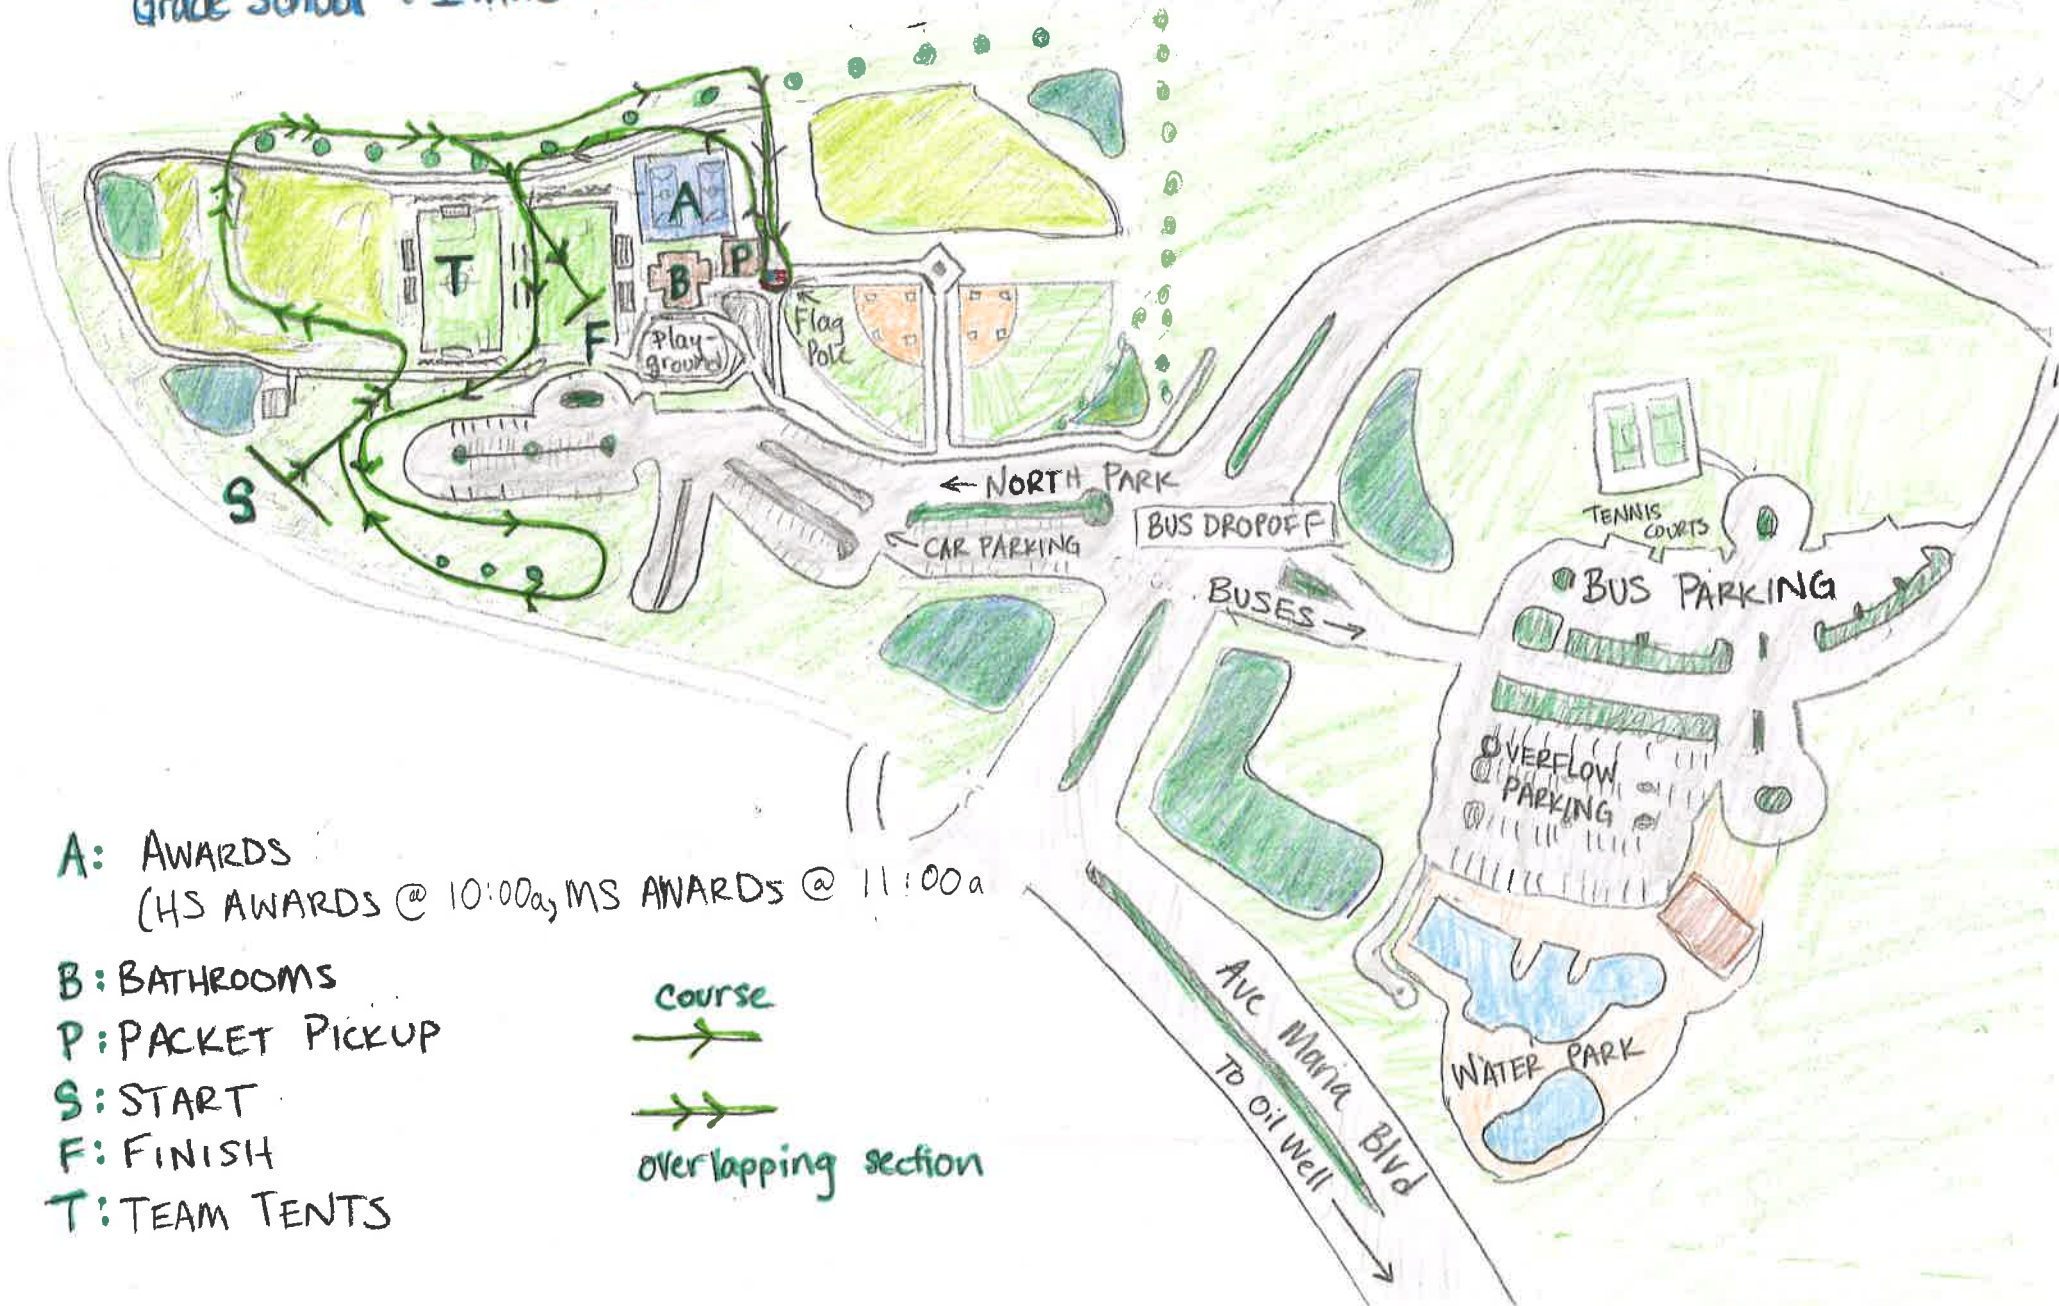 Grade School : 1 mile
A
T
P
B
F
Flag
Pole
Play-
ground
S
← NORTH PARK
BUS DROPOFF
← CAR PARKING
BUSES →
TENNIS
COURTS
BUS PARKING
OVERFLOW
PARKING
WATER PARK
Ave Maria Blvd
TO Oil Well
A: AWARDS
(HS AWARDS @ 10:00a, MS AWARDS @ 11:00a
B: BATHROOMS
P: PACKET PICKUP
S: START
F: FINISH
T: TEAM TENTS
course
overlapping section